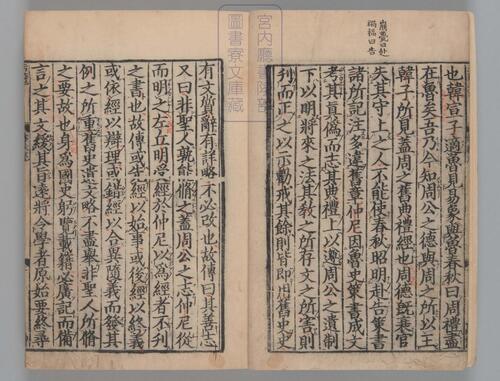 崩薨曰赴
禍福曰告
也韓宣子適魯見易象與魯春秋曰周禮盡
在魯矣吾乃今知周公之德與周之所以王
韓子所見蓋周之舊典禮經也周德既衰官
失其守上之人不能使春秋昭明赴告策書
諸所記注多違舊章仲尼因魯史策書成文
考其真僞而志其典禮上以遵周公之遺制
下以明將來之法其教之所存文之所害則
刊而正之以示勸戒其餘則皆即用舊史史
宮内廳書陵部
圖書寮文庫藏
有文質辭有詳略不必改也故傳曰其善志
又曰非聖人孰能脩之蓋周公之志仲尼從
而明之左丘明受經於仲尼以爲經者不刊
之書也故傳或先經以始事或後經以終義
或依經以辯理或錯經以合異隨義而發其
例之所重舊史遺文略不盡舉非聖人所脩
之要故也身爲國史躬覽載籍必廣記而備
言之其文緩其旨遠將令學者原始要終尋